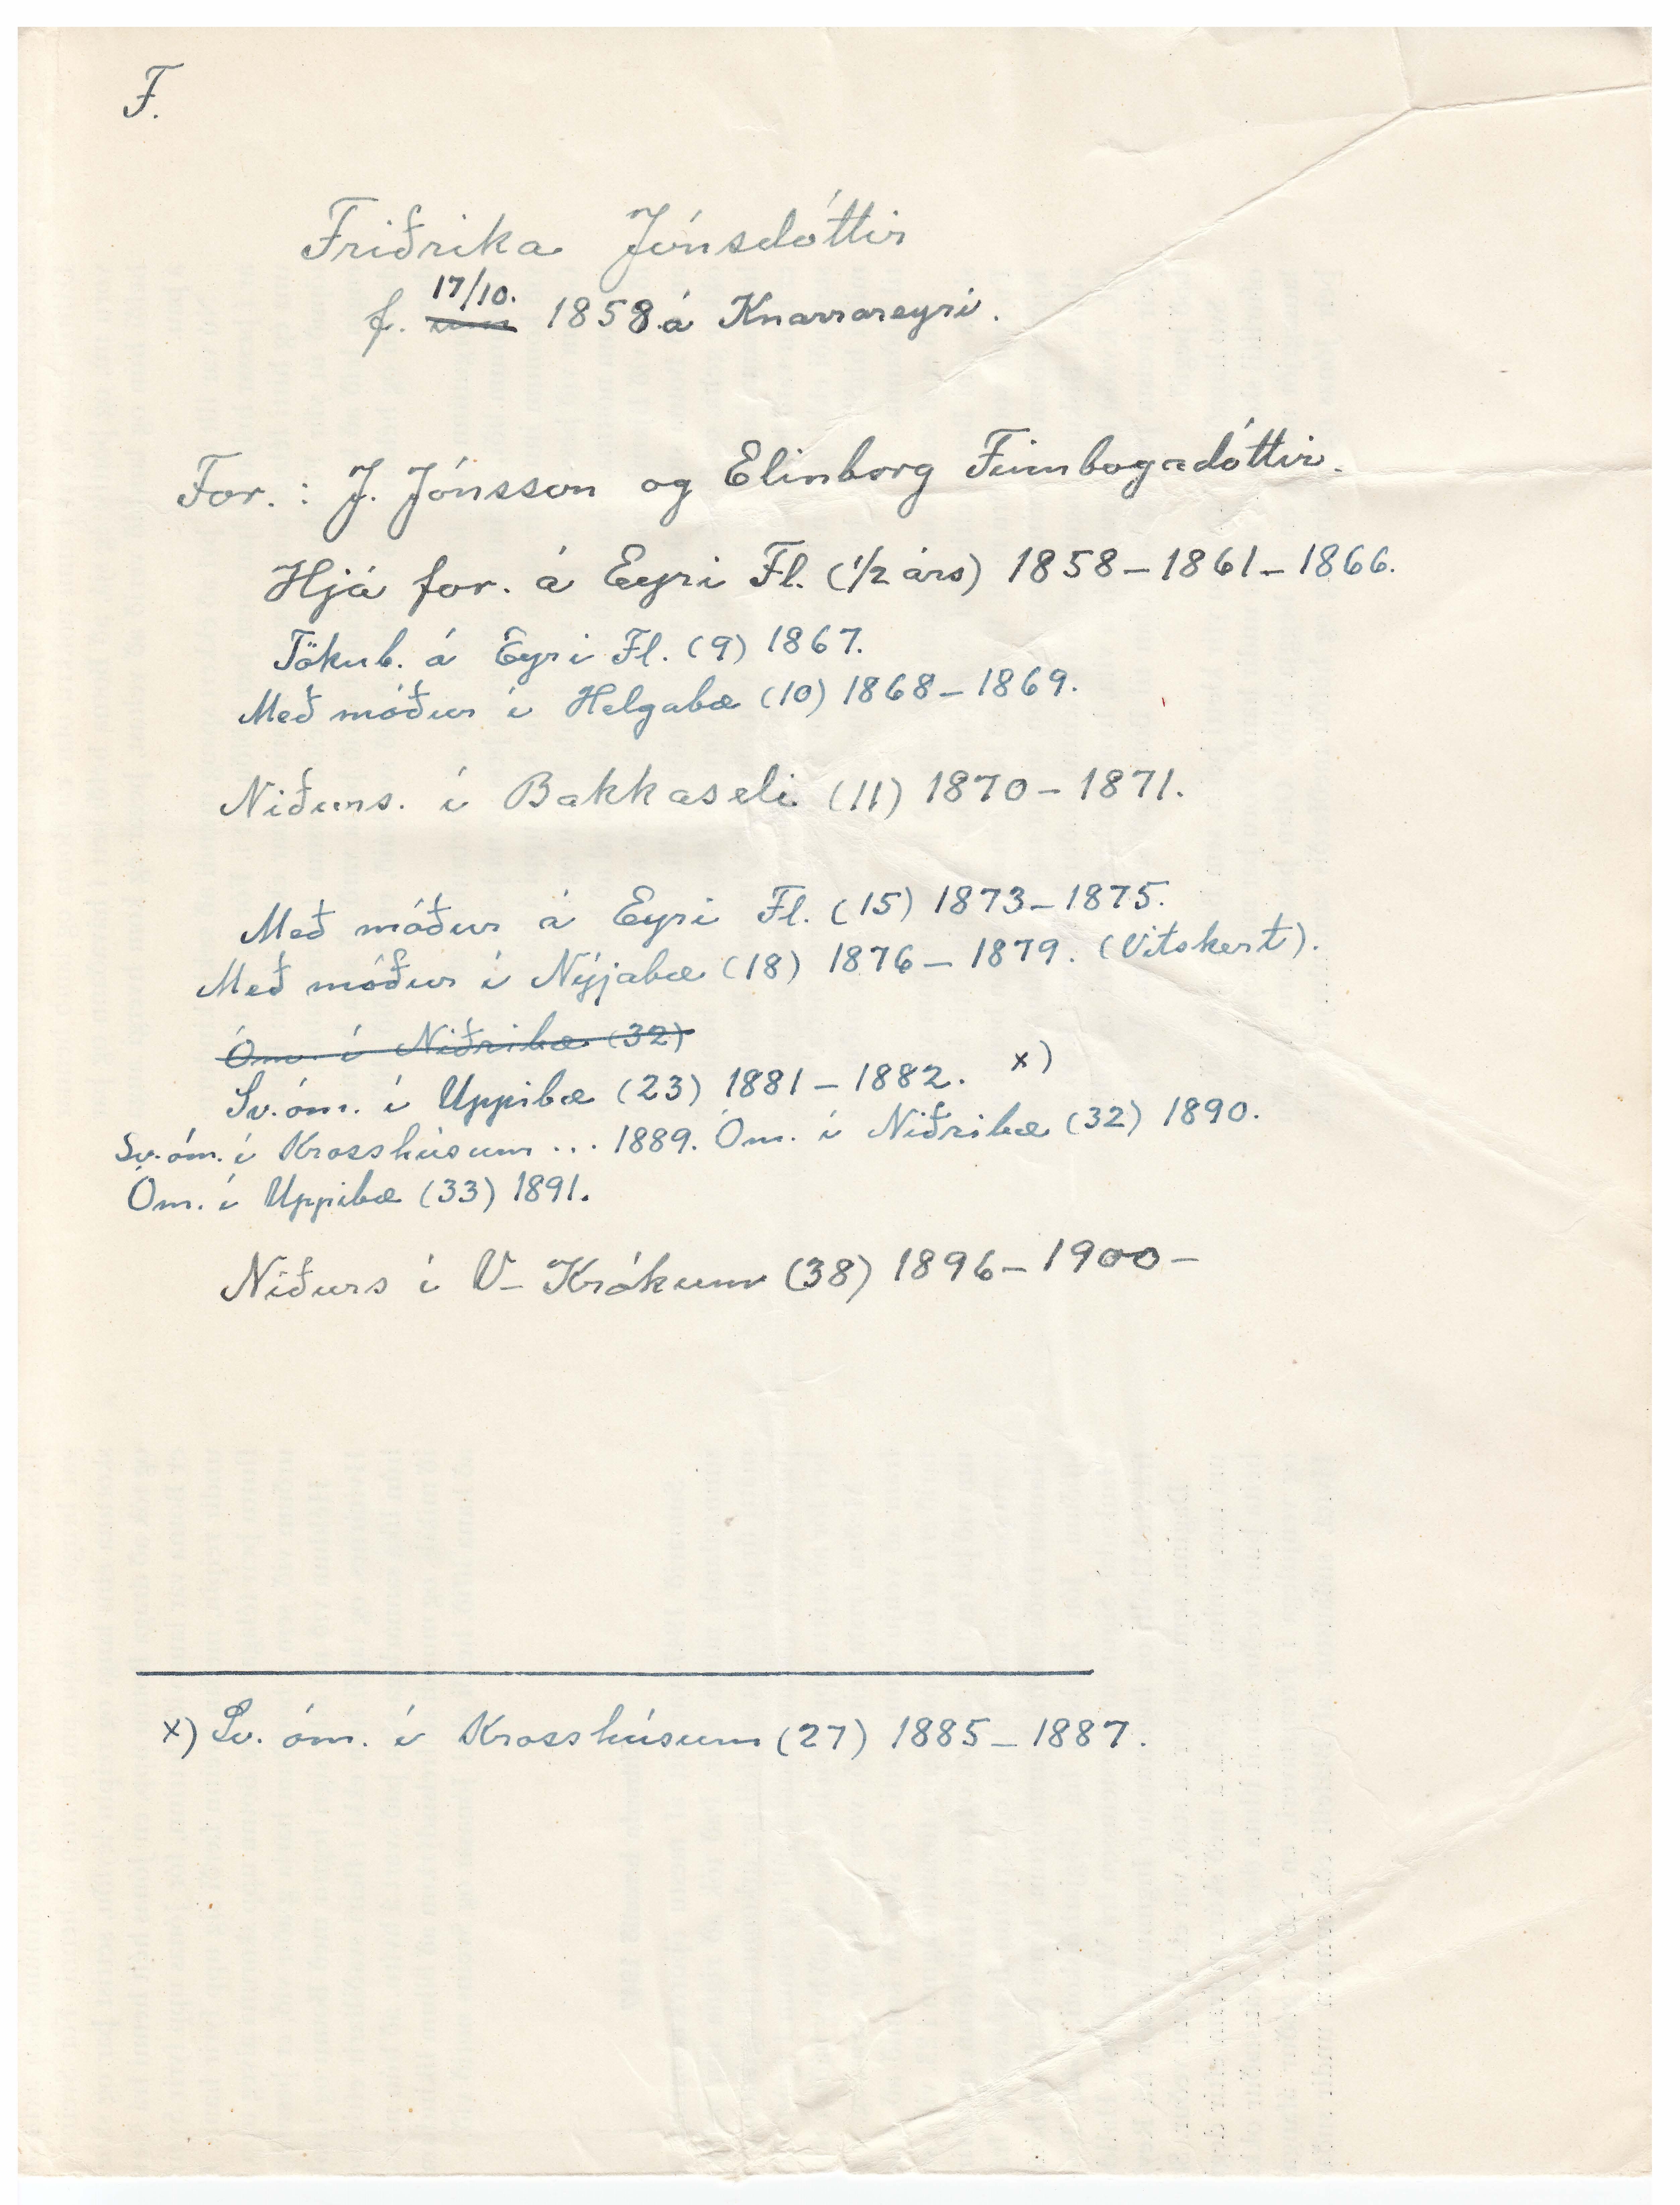 F.
Friðrika Jónsdóttir
17/10.
f. 1858 á Knarrareyri.
For. : J. Jónsson og Elinborg Finnbogadóttir.
Hjá for. á Eyri Fl. (1/2 árs) 1858 – 1861 – 1866.
Tökub. á Eyri Fl. (9) 1867.
Með móður í Helgabæ (10) 1868 – 1869.
Niðurs. í Bakkaseli (11) 1870 – 1871.
Með móður á Eyri Fl. (15) 1873 – 1875.
Með móður í Nýjabæ (18) 1876 – 1879. (Vitskert).
Óm. í Niðribæ (32)
Sv. óm. í Uppibæ (23) 1881 – 1882. x)
Sv. óm. í Krosshúsum ... 1889. Óm. í Niðribæ (32) 1890.
Óm. í Uppibæ (33) 1891.
Niðurs í V– Krókum (38) 1896 – 1900 –
x) Sv. óm. í Krosshúsum (27) 1885 – 1887.